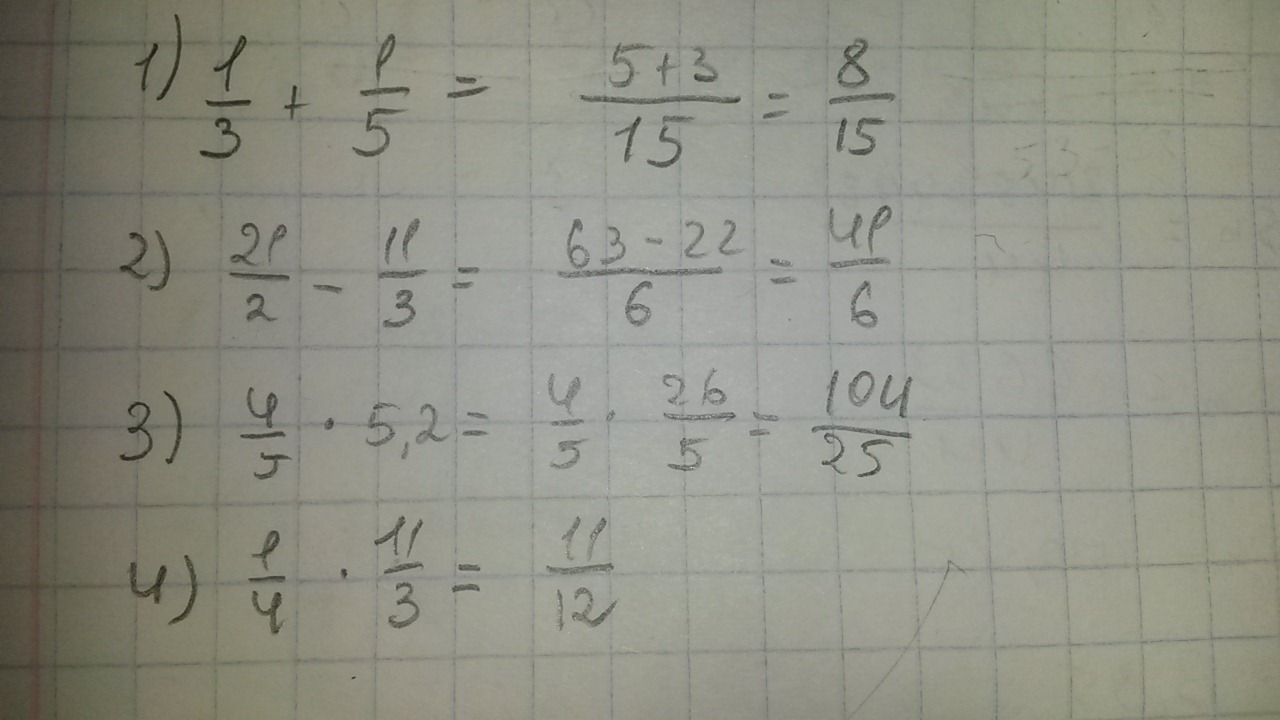 1) 1/3 + 1/5 = (5+3)/15 = 8/15
2) 21/2 - 11/3 = (63-22)/6 = 41/6
3) 4/5 · 5,2 = 4/5 · 26/5 = 104/25
4) 1/4 · 11/3 = 11/12